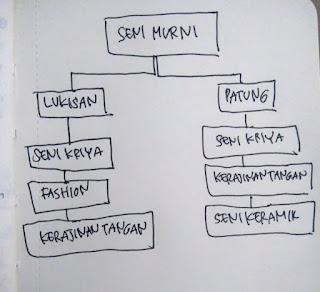 SENI MURNI
LUKISAN
SENI KRIYA
FASHION
KERAJINAN TANGAN
PATUNG
SENI KRIYA
KERAJINAN TANGAN
SENI KERAMIK